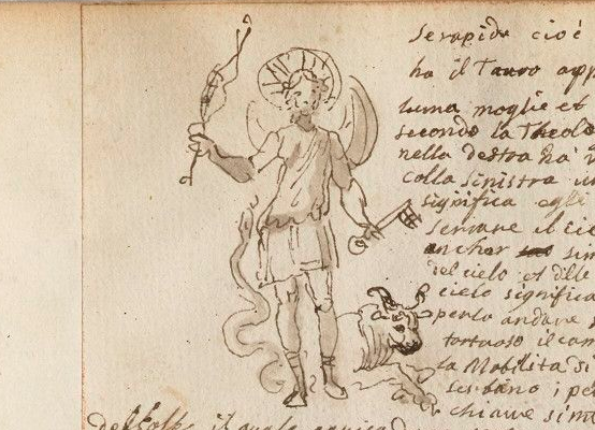 Serapide cioè
ha il Tauro app
luma moglie et
secondo la Theolo
nella destra ha
colla sinistra un
significa egli
serrare il cie
anchor sim
del cielo et dlle
cielo significa
perlo andare
tortuoso il cam
la Mobilita di
serbano i pe
chiave sim
il quale